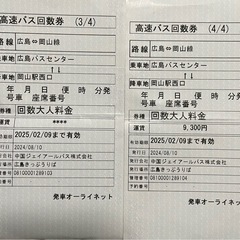 高速バス回数券 (3/4)
路線 広島⇔岡山線
乗車地 広島バスセンター
↑↓
降車地 岡山駅西口
年 月 日 便 時 分発
号車 座席番号
券種 回数大人料金
運賃 ****
有効期限 2025/02/09まで有効
発行日 2024/08/10
中国ジェイアールバス株式会社
広島きっぷうりば
08100001289103
発車オーライネット
高速バス回数券 (4/4)
路線 広島⇔岡山線
乗車地 広島バスセンター
↑↓
降車地 岡山駅西口
年 月 日 便 時 分発
号車 座席番号
券種 回数大人料金
運賃 9,300円
有効期限 2025/02/09まで有効
発行日 2024/08/10
中国ジェイアールバス株式会社
広島きっぷうりば
08100001289104
発車オーライネット